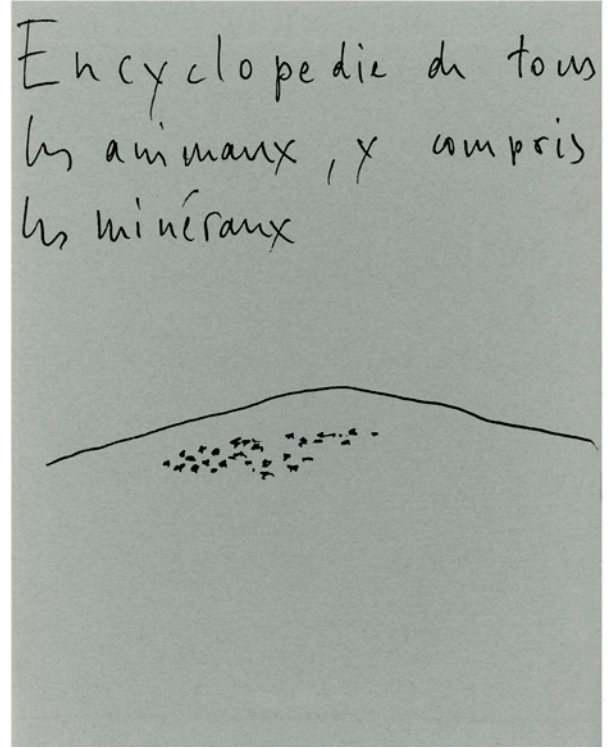 Encyclopedie de tous
les animaux, y compris
les minéraux